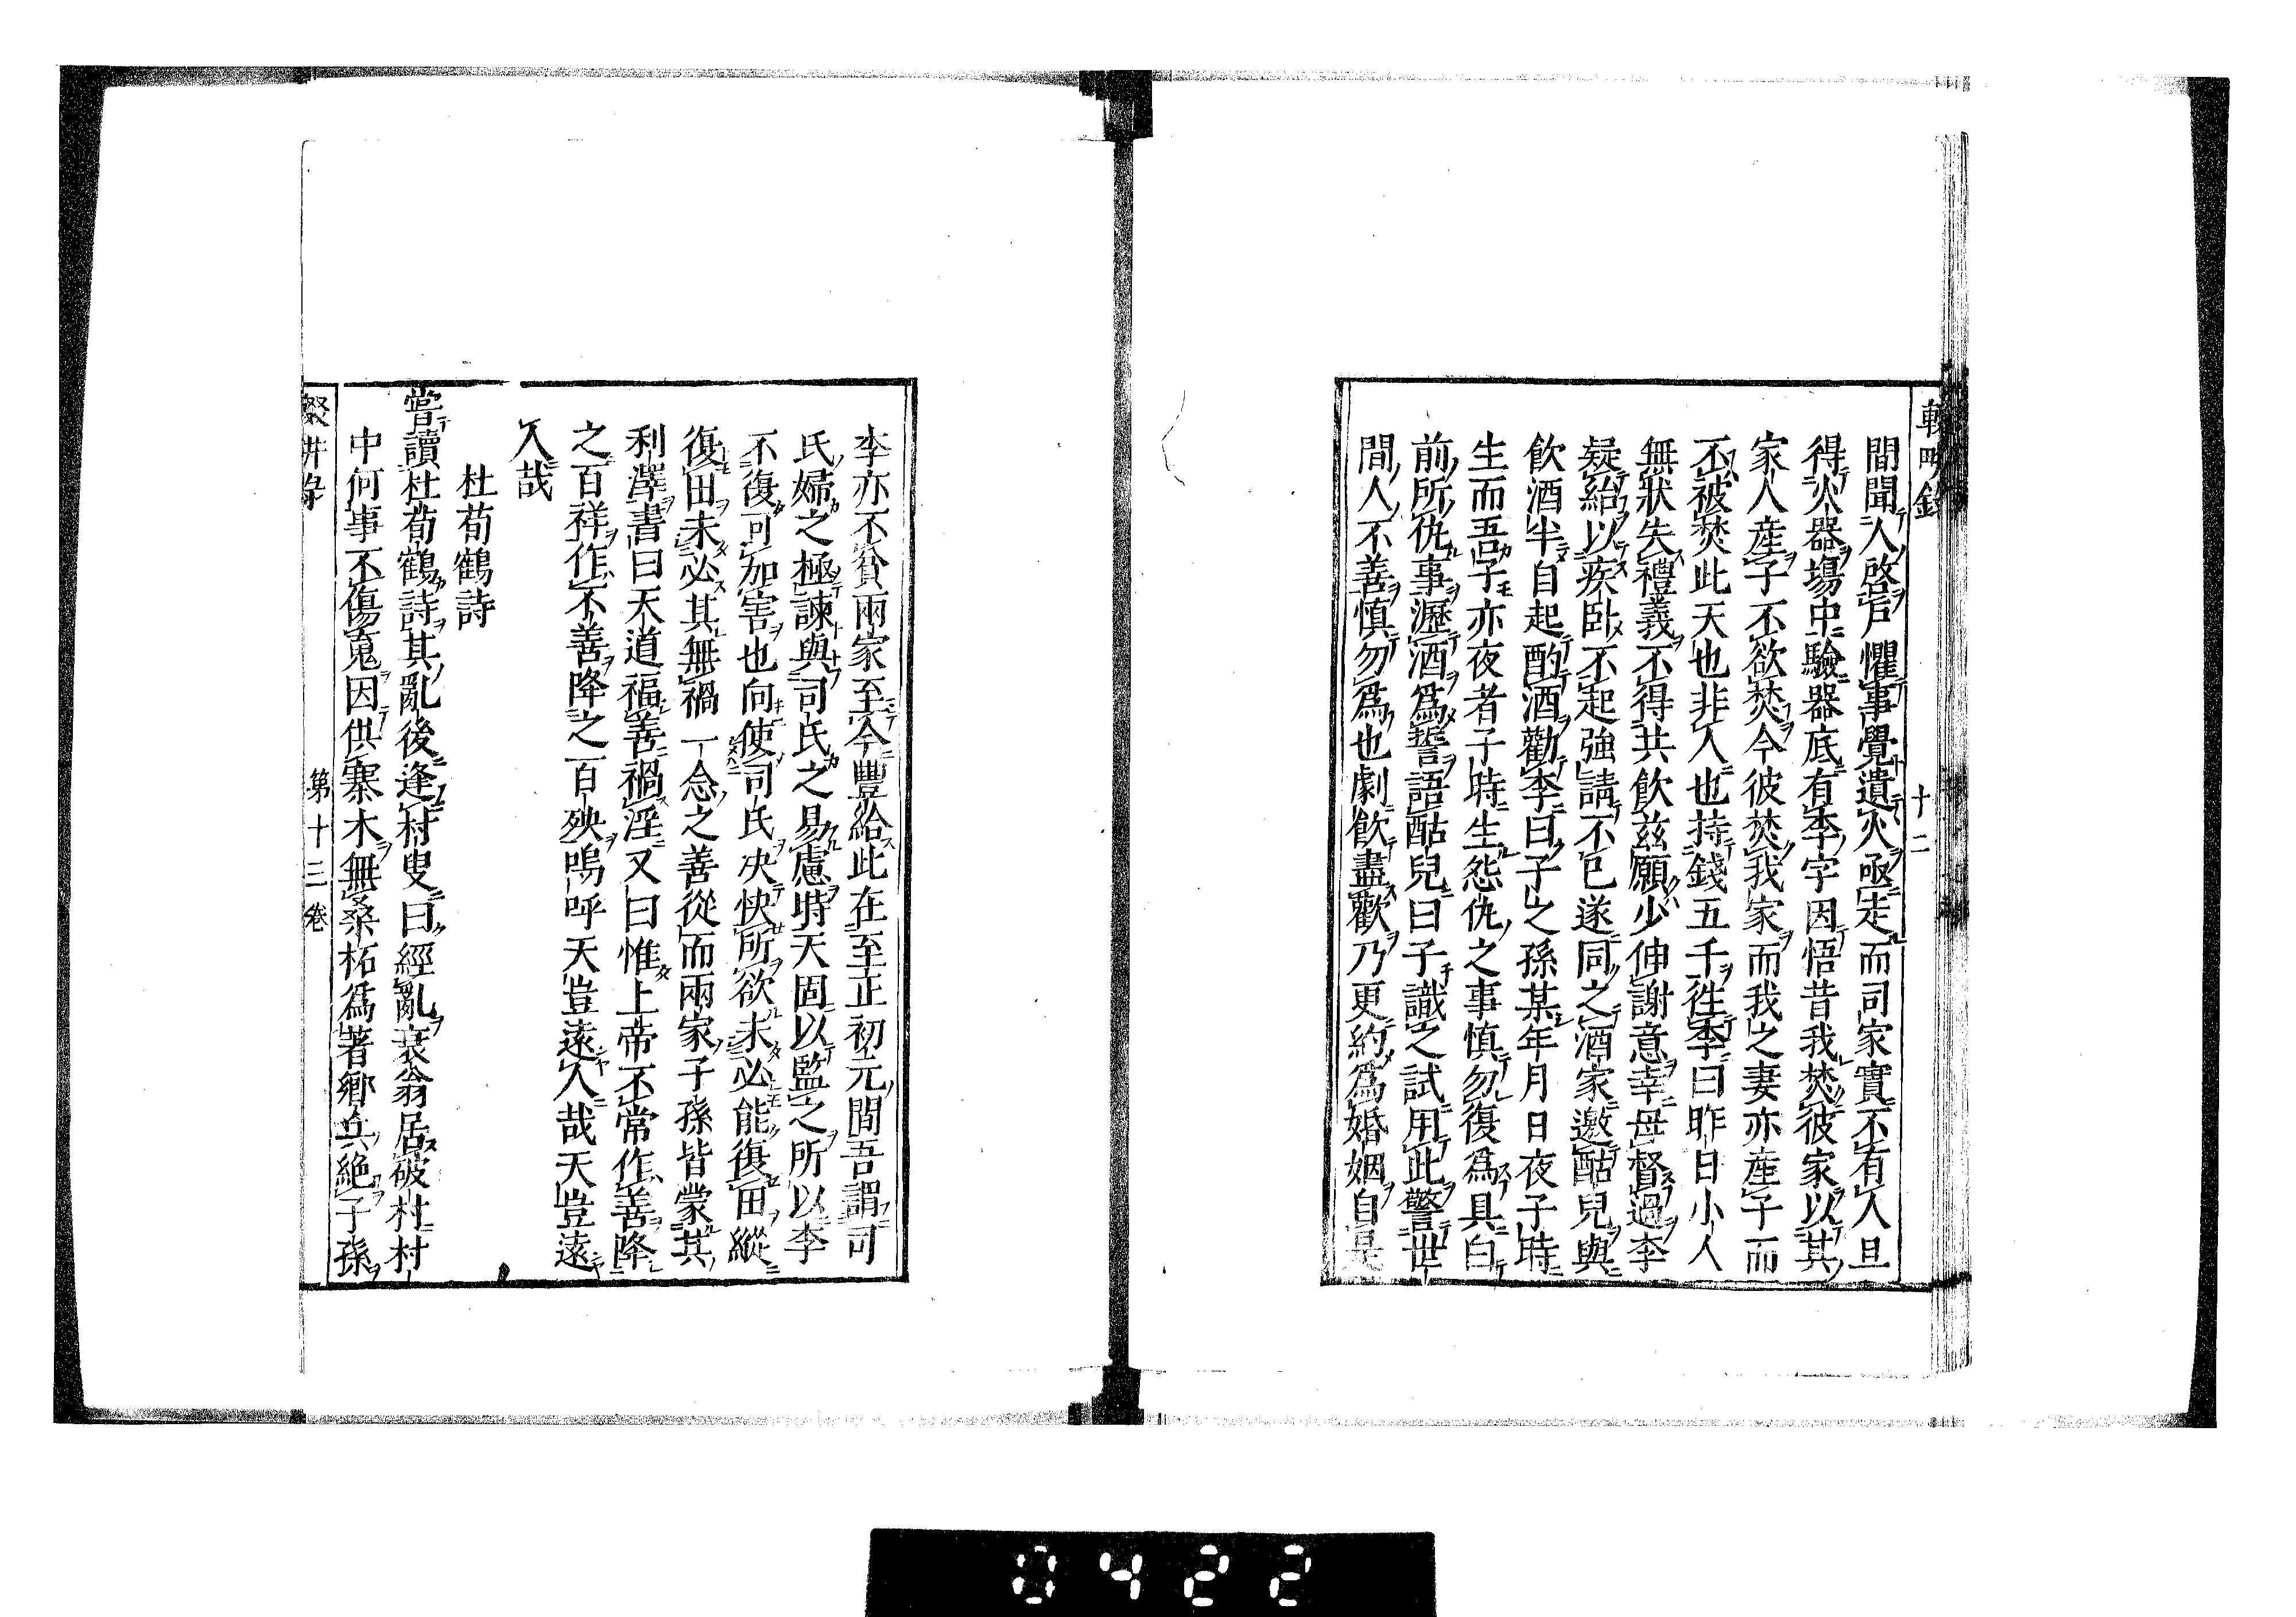 十二
間聞人啓戶懼事覺遺火亟走而司家實不有人旦
得火器塲中驗器底有李字因悟昔我焚彼家以其
家人産子不欲焚今彼焚我家而我之妻亦産子而
不被焚此天也非人也持錢五千徃李曰昨日小人
無狀失禮義不得共飲茲願少伸謝意幸毋督過李
疑紿以疾臥不起強請不已遂同之酒家邀酤兒與
飲酒半自起酌酒勸李曰子之孫某年月日夜子時
生而吾子亦夜者子時生怨仇之事慎勿復爲具白
前所仇事瀝酒爲誓語酤兒曰子識之試用此警世
間人不善慎勿爲也劇飲盡歡乃更約爲婚姻自是
李亦不貧兩家至今豐給此在至正初元間吾謂司
氏婦之極諫與司氏之易慮時天固以監之所以李
不復可加害也向使司氏决快所欲未必能復田縱
復田未必其無禍一念之善從而兩家子孫皆蒙其
利澤書曰天道福善禍淫又曰惟上帝不常作善降
之百祥作不善降之百殃嗚呼天豈遠人哉天豈遠
人哉
杜荀鶴詩
嘗讀杜荀鶴詩其亂後逢村叟曰經亂衰翁居破村村
中何事不傷䰟因供寨木無桑柘爲著鄕兵絶子孫
第十三卷
0422